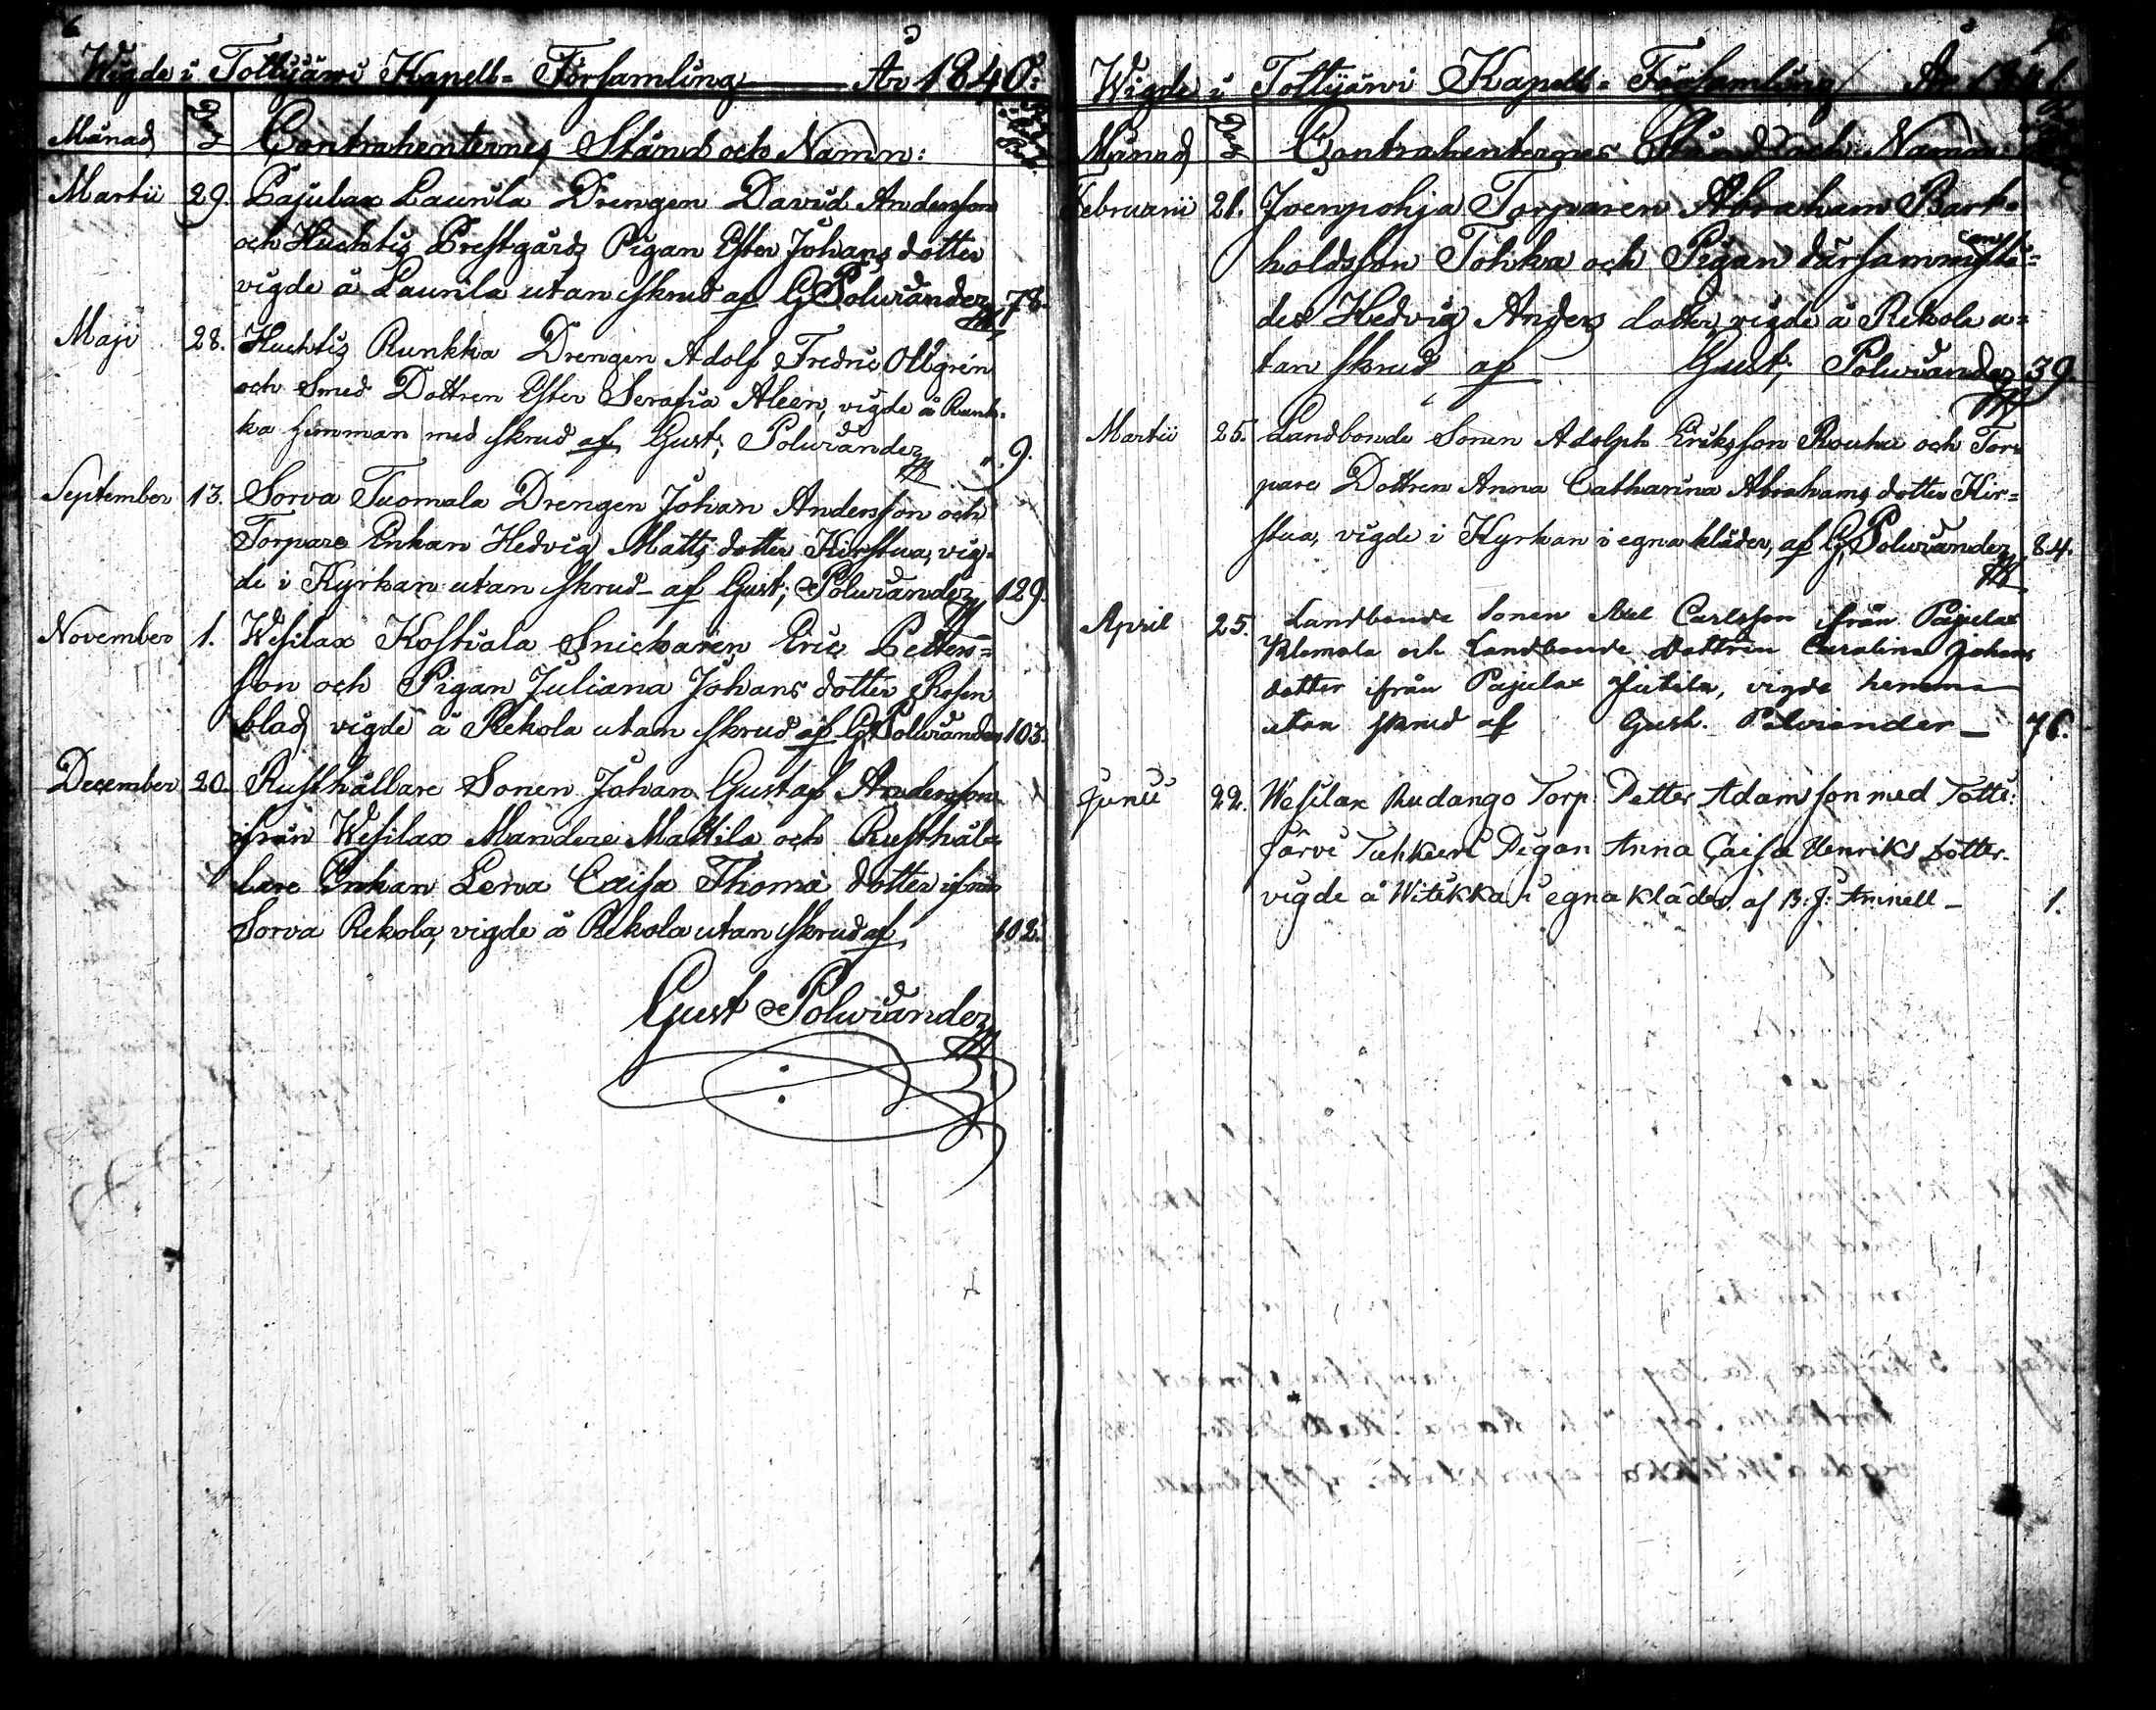 6.
Wigde i Tottijärvi Kapell= Församling År 1840:
Månad Dag Contrahenternes Stånd och Namn:
Martii 29. Pajulax Laurila Drengen David Andersson
och Huchtis Prestgårds Pigan Ester Johans dotter
vigde å Laurila utan skrud af G. Polviander 78.
Maji 28. Huchtis Runkka Drengen Adolf Fredric Ollgrén
och Smed Dottren Ester Serafia Aleen, vigde å Runk-
ka hemman med skrud af Gust; Polviander 9.
September 13. Sorva Tuomala Drengen Johan Andersson och
Torpare Enkan Hedvig Matts dotter Kirstua, vig-
de i Kyrkan utan skrud af Gust; Polviander 129.
November 1. Wesilax Kostiala Snickaren Eric Petters=
son och Pigan Juliana Johans dotter Rosen
blad vigde å Rekola utan skrud af G. Polviander 103.
December 20. Rusthållare Sonen Johan Gustaf Andersson
ifrån Wesilax Mandere Mattila och Rusthål-
lare Enkan Lena Caisa Thomä dotter ifrån
Sorva Rekola, vigde å Rekola utan skrud af 102.
Gust Polviander
Wigde i Tottijärvi Kapell= Församling År 1841.
Månad Dag Contrahenternes Stånd och Namn:
Februarii 21. Joenpohja Torparen Abraham Bart-
holdsson Tohka och Pigan därsammastä=
des Hedvig Anders dotter, vigde å Rekola u=
tan skrud af Gust; Polviander 39.
Martii 25. Landbonde Sonen Adolph Eriksson Rouhu och Tor-
pare Dottren Anna Catharina Abrahams dotter Kir=
stua, vigde i Kyrkan i egna kläder, af G. Polviander 84.
April 25. Landbonde Sonen Axel Carlsson ifrån Pajulax
Klemola och Landbonde Dottren Carolina Johans
dotter ifrån Pajulax Jutila, vigde hemma
utan skrud af Gust. Polviander 76.
Junii 22. Wesilax Rudango Torp Petter Adamsson med Totti:
järvi Tuhkuri Pigan Anna Caisa Henriks dotter.
vigde å Witikka i egna kläder af B: J: Aminell 1.